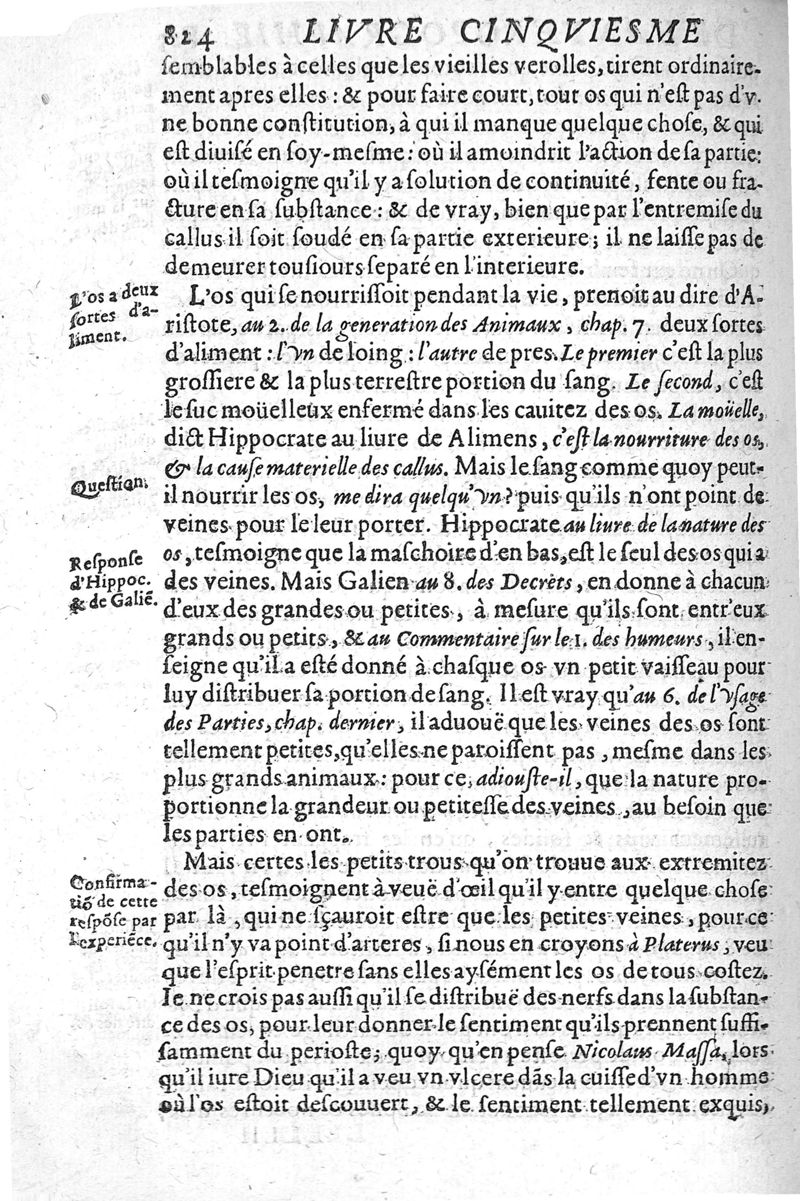 824 LIVRE CINQVIESME
semblables à celles que les vieilles verolles, tirent ordinaire-
ment apres elles : & pour faire court, tout os qui n'est pas d'v-
ne bonne constitution, à qui il manque quelque chose, & qui
est diuisé en soy-mesme : où il amoindrit l'action de sa partie:
où il tesmoigne qu'il y a solution de continuité, fente ou fra-
cture en sa substance : & de vray, bien que par l'entremise du
callus il soit soudé en sa partie exterieure; il ne laisse pas de
demeurer tousiours separé en l'interieure.
L'os a deux
sortes d'a-
liment.
L'os qui se nourrissoit pendant la vie, prenoit au dire d'A-
ristote, au 2. de la generation des Animaux, chap. 7. deux sortes
d'aliment : l'vn de loing : l'autre de pres. Le premier c'est la plus
grossiere & la plus terrestre portion du sang. Le second, c'est
le suc moüelleux enfermé dans les cauitez des os. La moüelle,
dict Hippocrate au liure de Alimens, c'est la nourriture des os,
& la cause materielle des callus. Mais le sang comme quoy peut-
Question.
il nourrir les os, me dira quelqu'vn? puis qu'ils n'ont point de
veines pour le leur porter. Hippocrate au liure de la nature des
os, tesmoigne que la maschoire d'en bas, est le seul des os qui a
Response
d'Hippoc.
& de Galiē.
des veines. Mais Galien au 8. des Decrets, en donne à chacun
d'eux des grandes ou petites, à mesure qu'ils sont entr'eux
grands ou petits, & au Commentaire sur le 1. des humeurs, il en-
seigne qu'il a esté donné à chasque os vn petit vaisseau pour
luy distribuer sa portion de sang. Il est vray qu'au 6. de l'vsage
des Parties, chap. dernier, il aduouë que les veines des os sont
tellement petites, qu'elles ne paroissent pas, mesme dans les
plus grands animaux : pour ce, adiouste-il, que la nature pro-
portionne la grandeur ou petitesse des veines, au besoin que
les parties en ont.
Mais certes les petits trous qu'on trouue aux extremitez
Confirma-
tiō de cette
respōse par
l'experiēce.
des os, tesmoignent à veuë d'œil qu'il y entre quelque chose
par là, qui ne sçauroit estre que les petites veines, pource
qu'il n'y va point d'arteres, si nous en croyons à Platerus, veu
que l'esprit penetre sans elles aysément les os de tous costez.
Ie ne crois pas aussi qu'il se distribuë des nerfs dans la substan-
ce des os, pour leur donner le sentiment qu'ils prennent suffi-
samment du perioste; quoy qu'en pense Nicolaus Massa, lors
qu'il iure Dieu qu'il a veu vn vlcere dās la cuisse d'vn homme
où l'os estoit descouuert, & le sentiment tellement exquis,